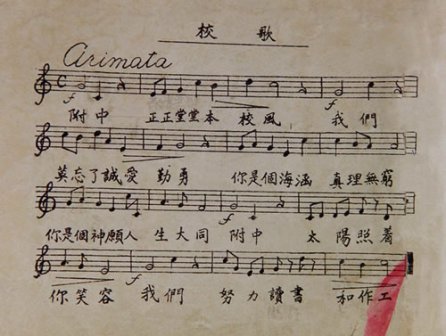 校歌
Arimata
附中 正正堂堂本 校風 我們
莫忘了誠愛 勤勇 你是個海涵 真理無窮
你是個神願人 生大同 附中 太陽照着
你笑容 我們 努力讀書 和作工